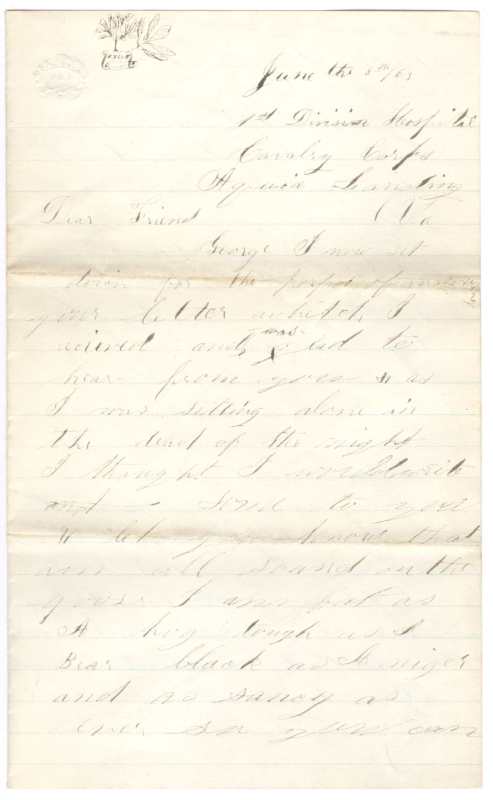 June the 5th/63
1st Division Hospital
Cavalry Corps
Aquia Landing
Dear Friend (Va
George I now set
down for the porpos of
your letter whitch I
and was glad to
hear from you & as
I was setting alone in
the dead of the night
I thought I would write
and send to you
& let you know that
am all sound on the
goose I am fat as
A hog tough as A
Bear black as A niger
and as saucy as
ever so you can